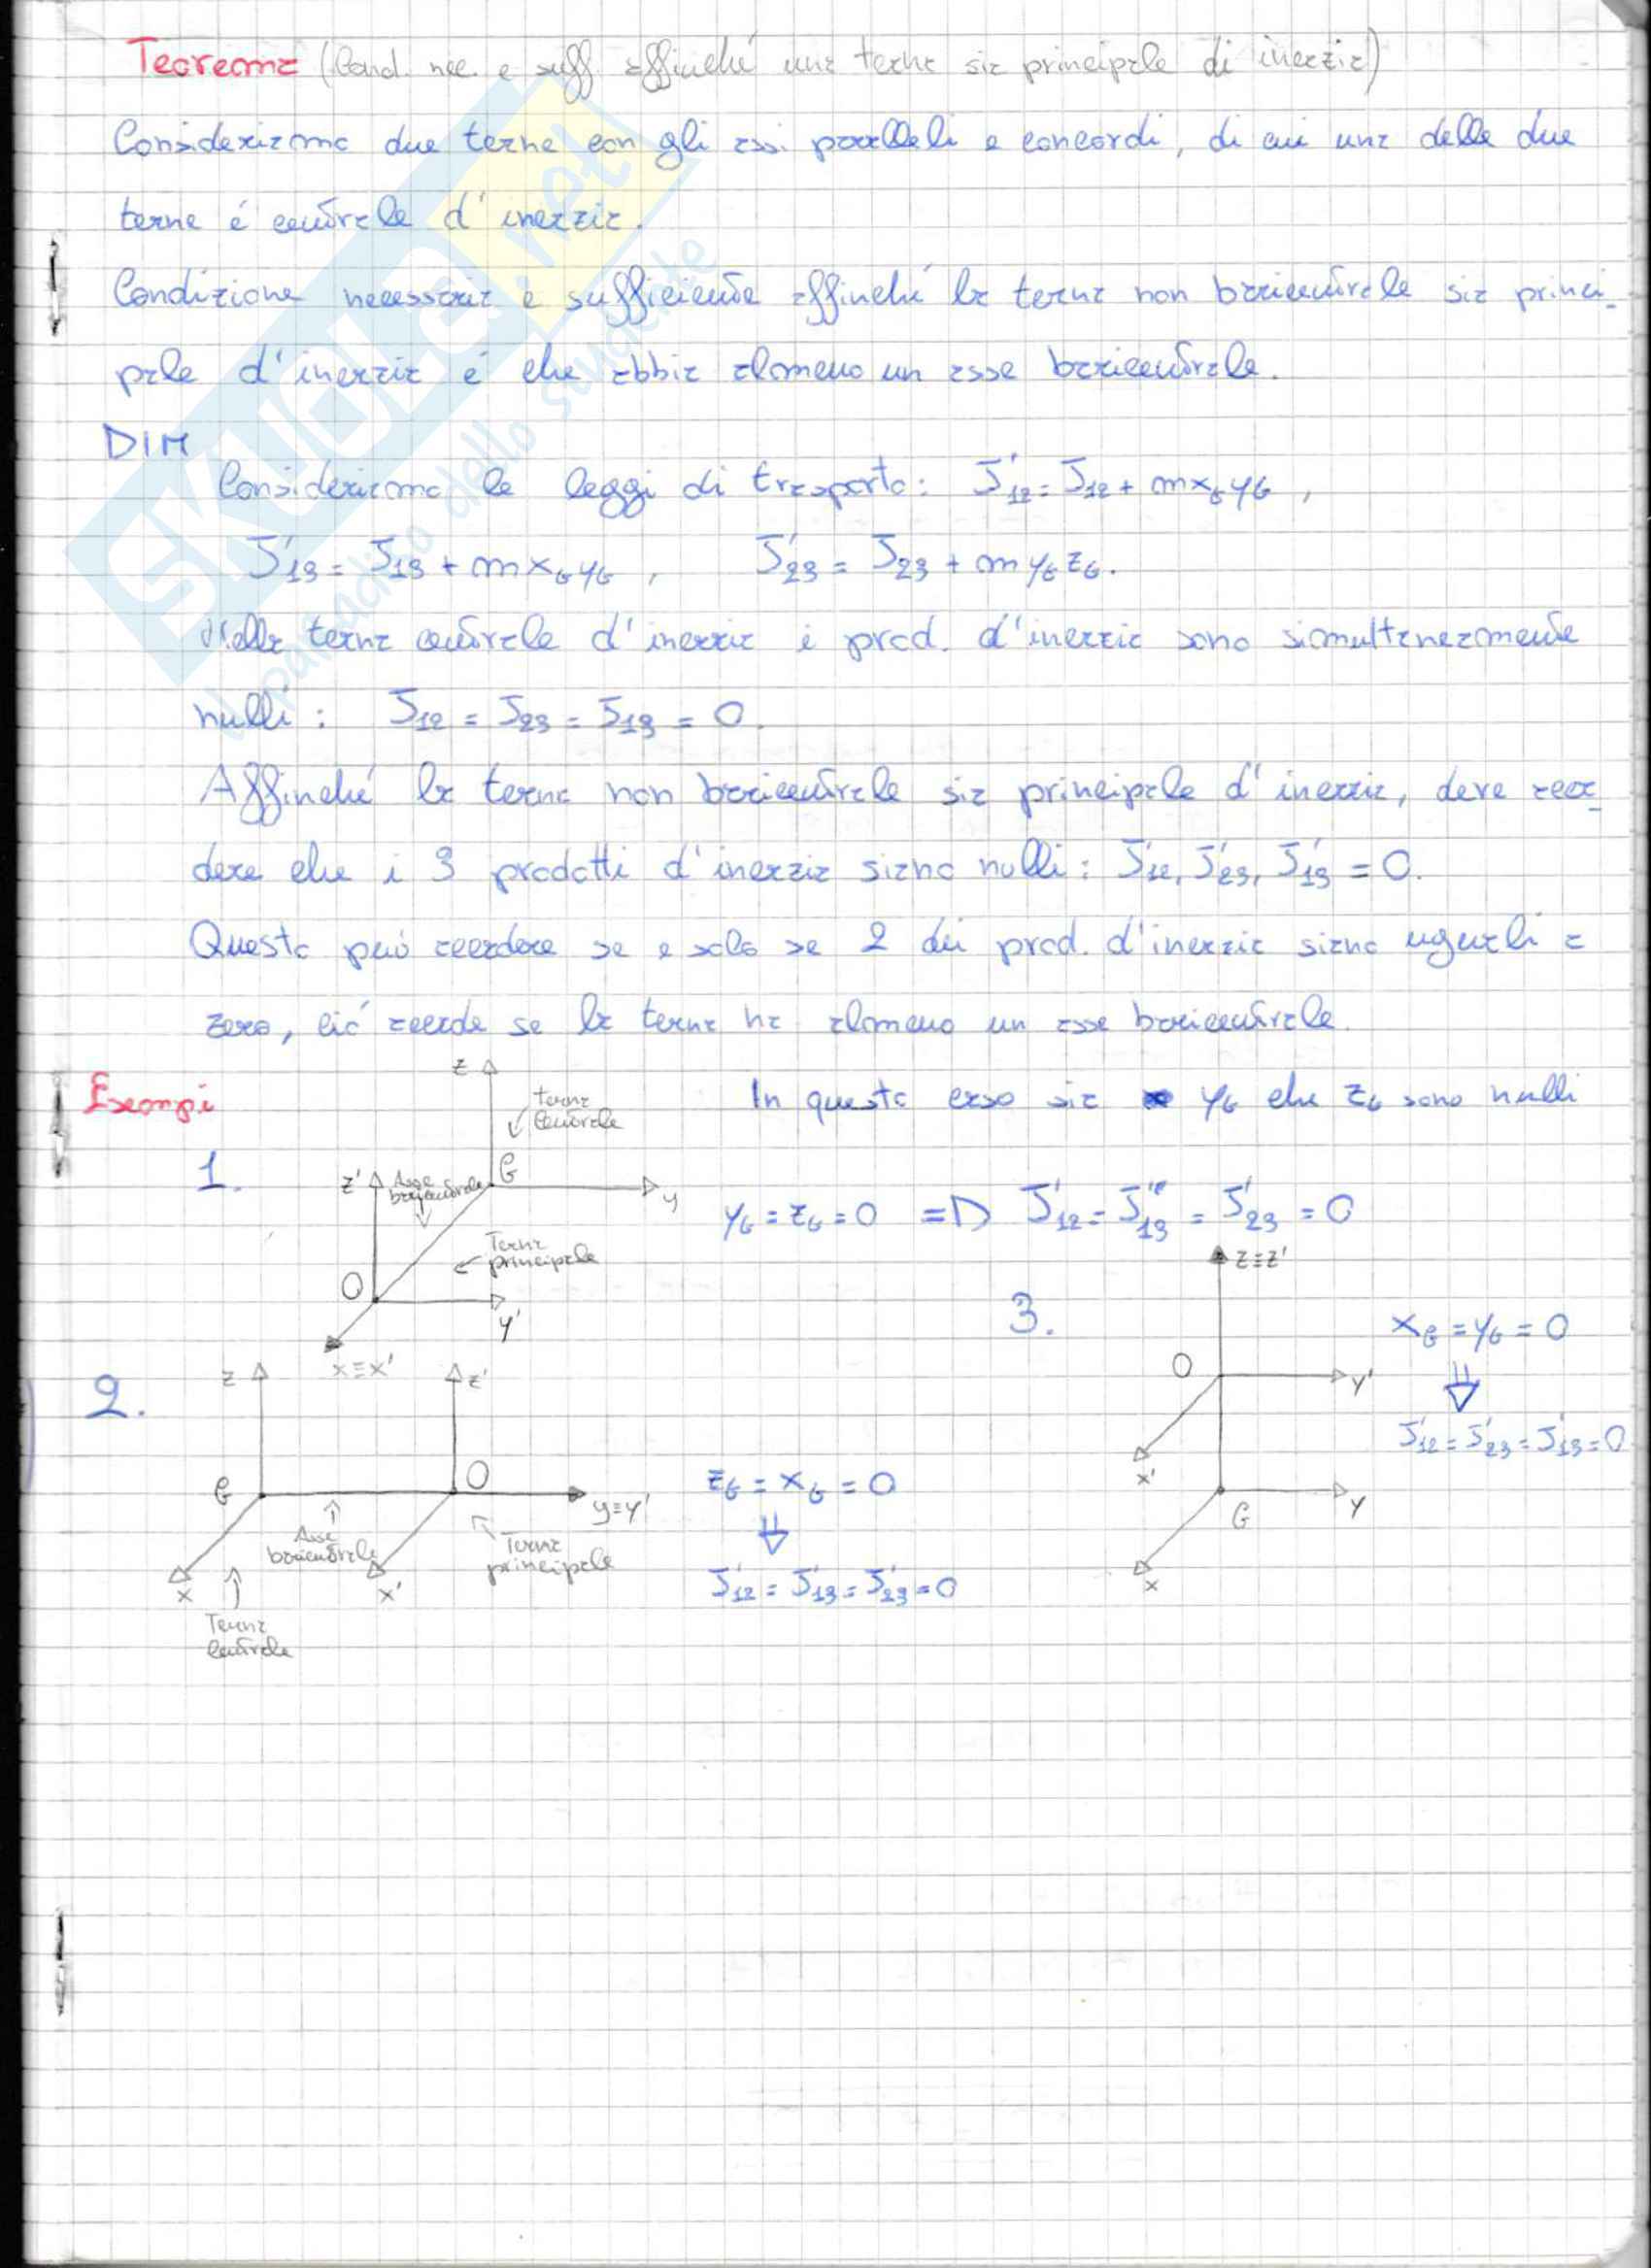 Teorema (Cond. nec. e suff. affinché una terna sia principale di inerzia)
Consideriamo due terne con gli assi paralleli e concordi, di cui una delle due
terne é centrale d'inerzia.
Condizione necessaria e sufficiente affinché la terna non baricentrale sia princi-
pale d'inerzia é che abbia almeno un asse baricentrale.
DIM
Consideriamo le leggi di trasporto: J'12 = J12 + m xG yG ,
J'13 = J13 + m xG yG , J'23 = J23 + m yG zG.
Nella terna centrale d'inerzia i prod. d'inerzia sono simultaneamente
nulli: J12 = J23 = J13 = 0.
Affinché la terna non baricentrale sia principale d'inerzia, deve acca-
dere che i 3 prodotti d'inerzia siano nulli: J'12, J'23, J'13 = 0.
Questo può accadere se e solo se 2 dei prod. d'inerzia siano uguali a
zero, ció accade se la terna ha almeno un asse baricentrale.
Esempi
In questo caso sia yG che zG sono nulli
1.
z
terna
centrale
G
y
z'
Asse
baricentrale
Terna
principale
O
y'
x≡x'
yG = zG = 0 => J'12 = J'13 = J'23 = 0
2.
z
z'
G
O
y≡y'
Asse
baricentrale
Terna
principale
x
x'
Terna
centrale
zG = xG = 0
⇓
J'12 = J'13 = J'23 = 0
3.
z≡z'
O
y'
x'
G
y
x
xG = yG = 0
⇓
J'12 = J'23 = J'13 = 0
SKUOLA.net
il paradiso dello studente